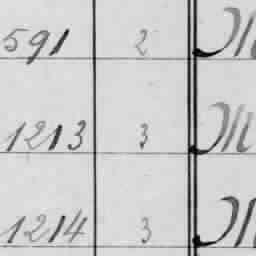 591 2
1213 3
1214 3